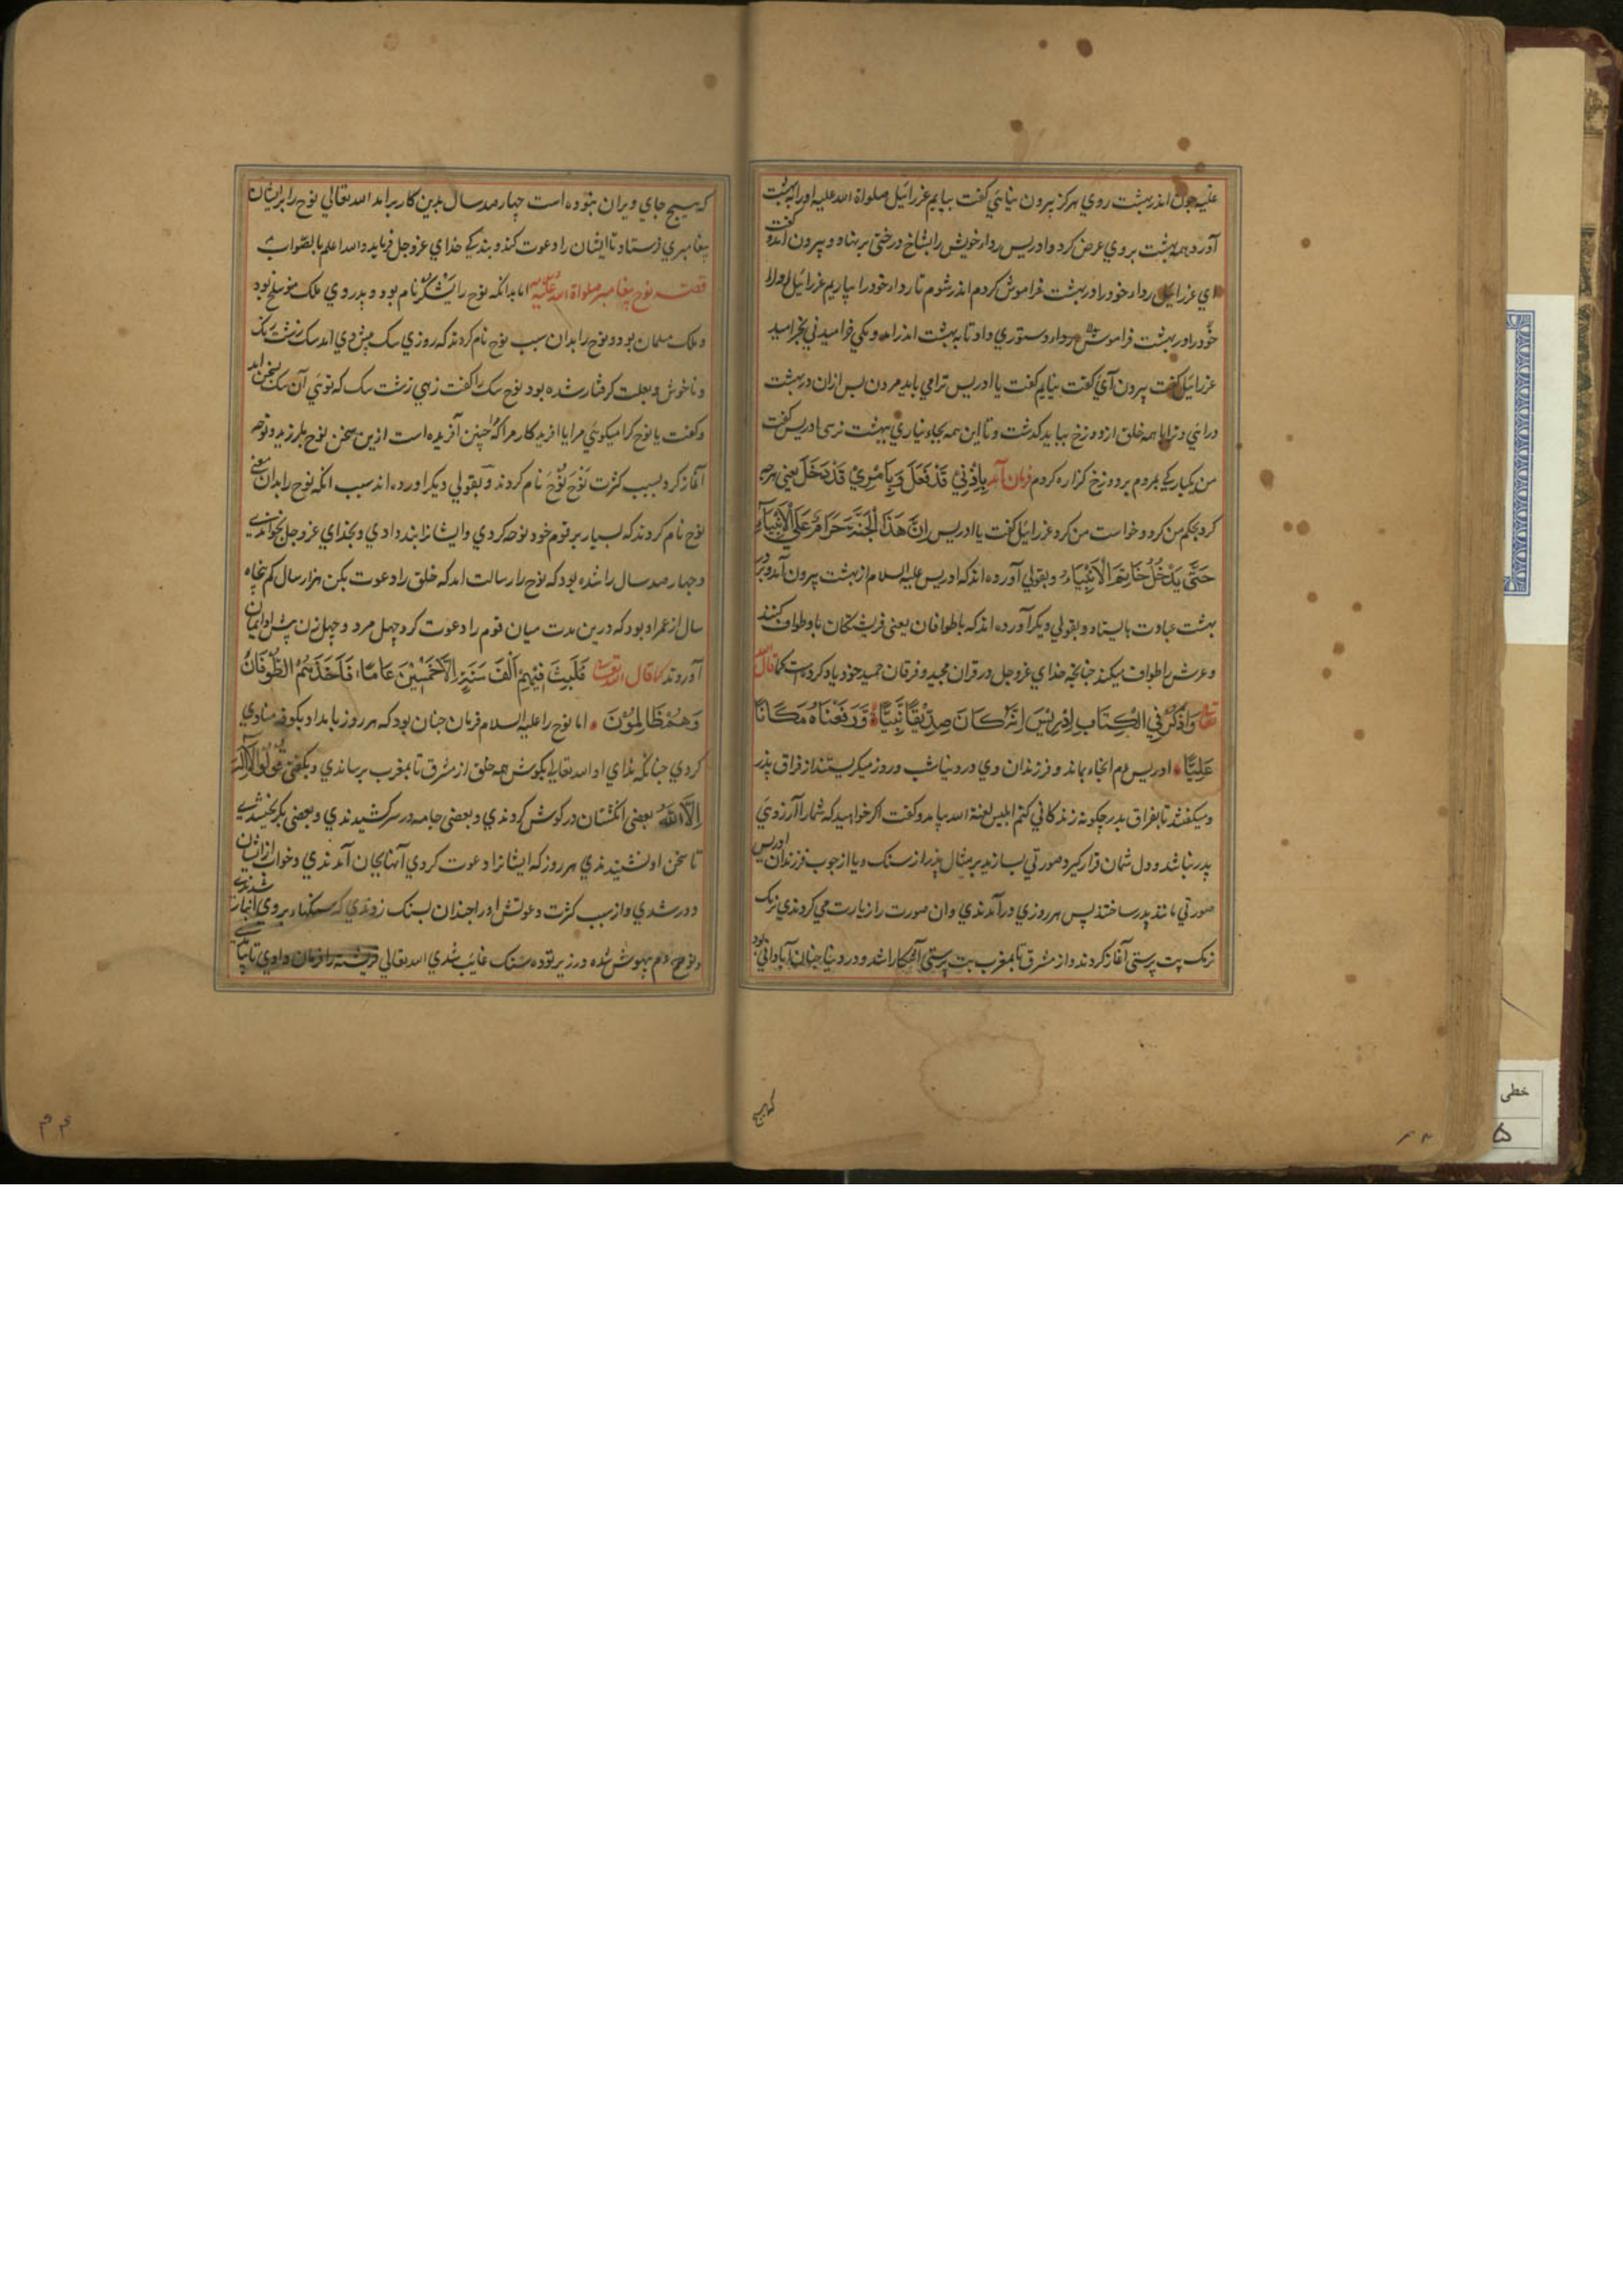 علیه چون اندر بهشت روی هرگز بیرون نیائی گفت بیایم عزرائیل صلواة الله علیه او را ببهشت
آورد همه بهشت بروی عرض کرد و ادریس ردا خویش را بشاخ درختی بر نهاد و بیرون آمد و گفت
ای عزرائیل ردا خود را در بهشت فراموش کردم اندر شوم تا ردا خود را بیاریم عزرائیل او را
خود را در بهشت فراموش ردا و دستوری داد تا به بهشت اندر آمد و یکی خرامیدنی بخرامید
عزرائیل گفت بیرون آی گفت نیایم گفت یا ادریس ترا می باید مردن پس ازان در بهشت
درائی و ترا با همه خلق از دوزخ بباید گذشت و تا این همه بجاء نیاری ببهشت نرسی ادریس گفت
من یکبارگی بمردم بر دوزخ گزاره کردم فرمان آمد بِاِذْنِیْ قَدْ فَعَلَ وَبِاَمْرِیْ قَدْ دَخَلَ یعنی هرچه
کرد بحکم من کرد و خواست من کرد عزرائیل گفت یا ادریس اِنَّ هَذَا الْجَنَّةَ حَرَامٌ عَلَی الْاَنْبِیَاءِ
حَتّٰی یَدْخُلُ خَاتِمُ الْاَنْبِیَاءِ و بقولی آورده اند که ادریس علیه السلام از بهشت بیرون آمد و بر در
بهشت عبادت بایستاد و بقولی دیگر آورده اند که با طوافان یعنی فرشتگان با و طواف کنند
و عرش را طواف میکند چنانچه خدای عزوجل در قران مجید و فرقان حمید خود یاد کرده است کما قال الله
تعا وَاذْکُرْ فِی الْکِتَابِ اِدْرِیْسَ اِنَّهٗ کَانَ صِدِّیْقًا نَبِیًّا وَرَفَعْنَاهُ مَکَانًا
عَلِیًّا ادریس ع م انجاء بماند و فرزندان وی در دنیا شب و روز میگریستند از فراق پدر
و میگفتند تا بفراق پدر چگونه زندگانی کنیم ابلیس لعنة الله بیامد و گفت اگر خواهید که شما را آرزوی
پدر نباشد و دل شمان قرار گیرد صورتی بسازید بر مثال پدر از سنگ و یا از چوب فرزندان ادریس
صورتی مانند پدر ساختند پس هر روزی درآمدندی و ان صورت را زیارت می کردندی نزک
نزک بت پرستی آغاز کردند و از مشرق تا بمغرب بت پرستی آشکارا شد و در دنیا چنان آبادانی بود
که هیچ
که هیچ جای ویران نبوده است چهار صد سال بدین کار برامد الله تعالی نوح را بر ایشان
پیغامبری فرستاد تا ایشان را دعوت کند و بندگی خدای عزوجل فرماید والله اعلم بالصواب
قصته نوح پیغامبر صلواة الله علیه اما بدانکه نوح را یشکر نام بود و پدر وی ملک متوسلخ بود
و ملک مسلمان بود و نوح را بدان سبب نوح نام کردند که روزی سک پیش وی امد سک زشت رنگ
و ناخوش و بعلت گرفتار شده بود نوح سک را گفت زهی زشت سک که توئی آن سک بسخن امد
و گفت یا نوح کرا میگوئی مرا یا افریدگار مرا که چنین آفریده است ازین سخن نوح بلرزید و نوحه
آغاز کرد بسبب کثرت نَوْحَ نُوْحَ نام کردند و بقولی دیگر اورده اند سبب انکه نوح را بدان معنی
نوح نام کردند که بسیار بر قوم خود نوحه کردی و ایشانرا پند دادی و بخدای عزوجل خواندی
و چهار صد سال را شده بود که نوح را رسالت امد که خلق را دعوت بکن هزار سال کم پنجاه
سال از عمر او بود که درین مدت میان قوم را دعوت کرد چهل مرد و چهل زن پیش او ایمان
آوردند کما قال الله تعا فَلَبِثَ فِیْهِمْ اَلْفَ سَنَةٍ اِلَّا خَمْسِیْنَ عَامًا فَاَخَذَهُمُ الطُّوْفَانُ
وَهُمْ ظَالِمُوْنَ اما نوح را علیه السلام فرمان چنان بود که هر روز بامداد بکوه منادی
کردی چنانکه ندای او الله تعالی بگوش همه خلق از مشرق تا بمغرب برساندی و بگفتی قُوْلُوْا لَا اِلٰهَ
اِلَّا اللّٰهُ بعضی انگشتان در گوش کردندی و بعضی جامه در سر کشیدندی و بعضی بگریختندی
تا سخن او نشنیدندی هر روز که ایشانرا دعوت کردی آنها بجان آمدندی و خواب ازیشان
دور شدی و از سبب کثرت دعوتش او را چندان بسنگ زدندی که سنگهاء بر وی انبار شدندی
و نوح ع م بیهوش شده در زیر توده سنگ غایب شدی الله تعالی فرشته را فرمان دادی تا
خطی
۵